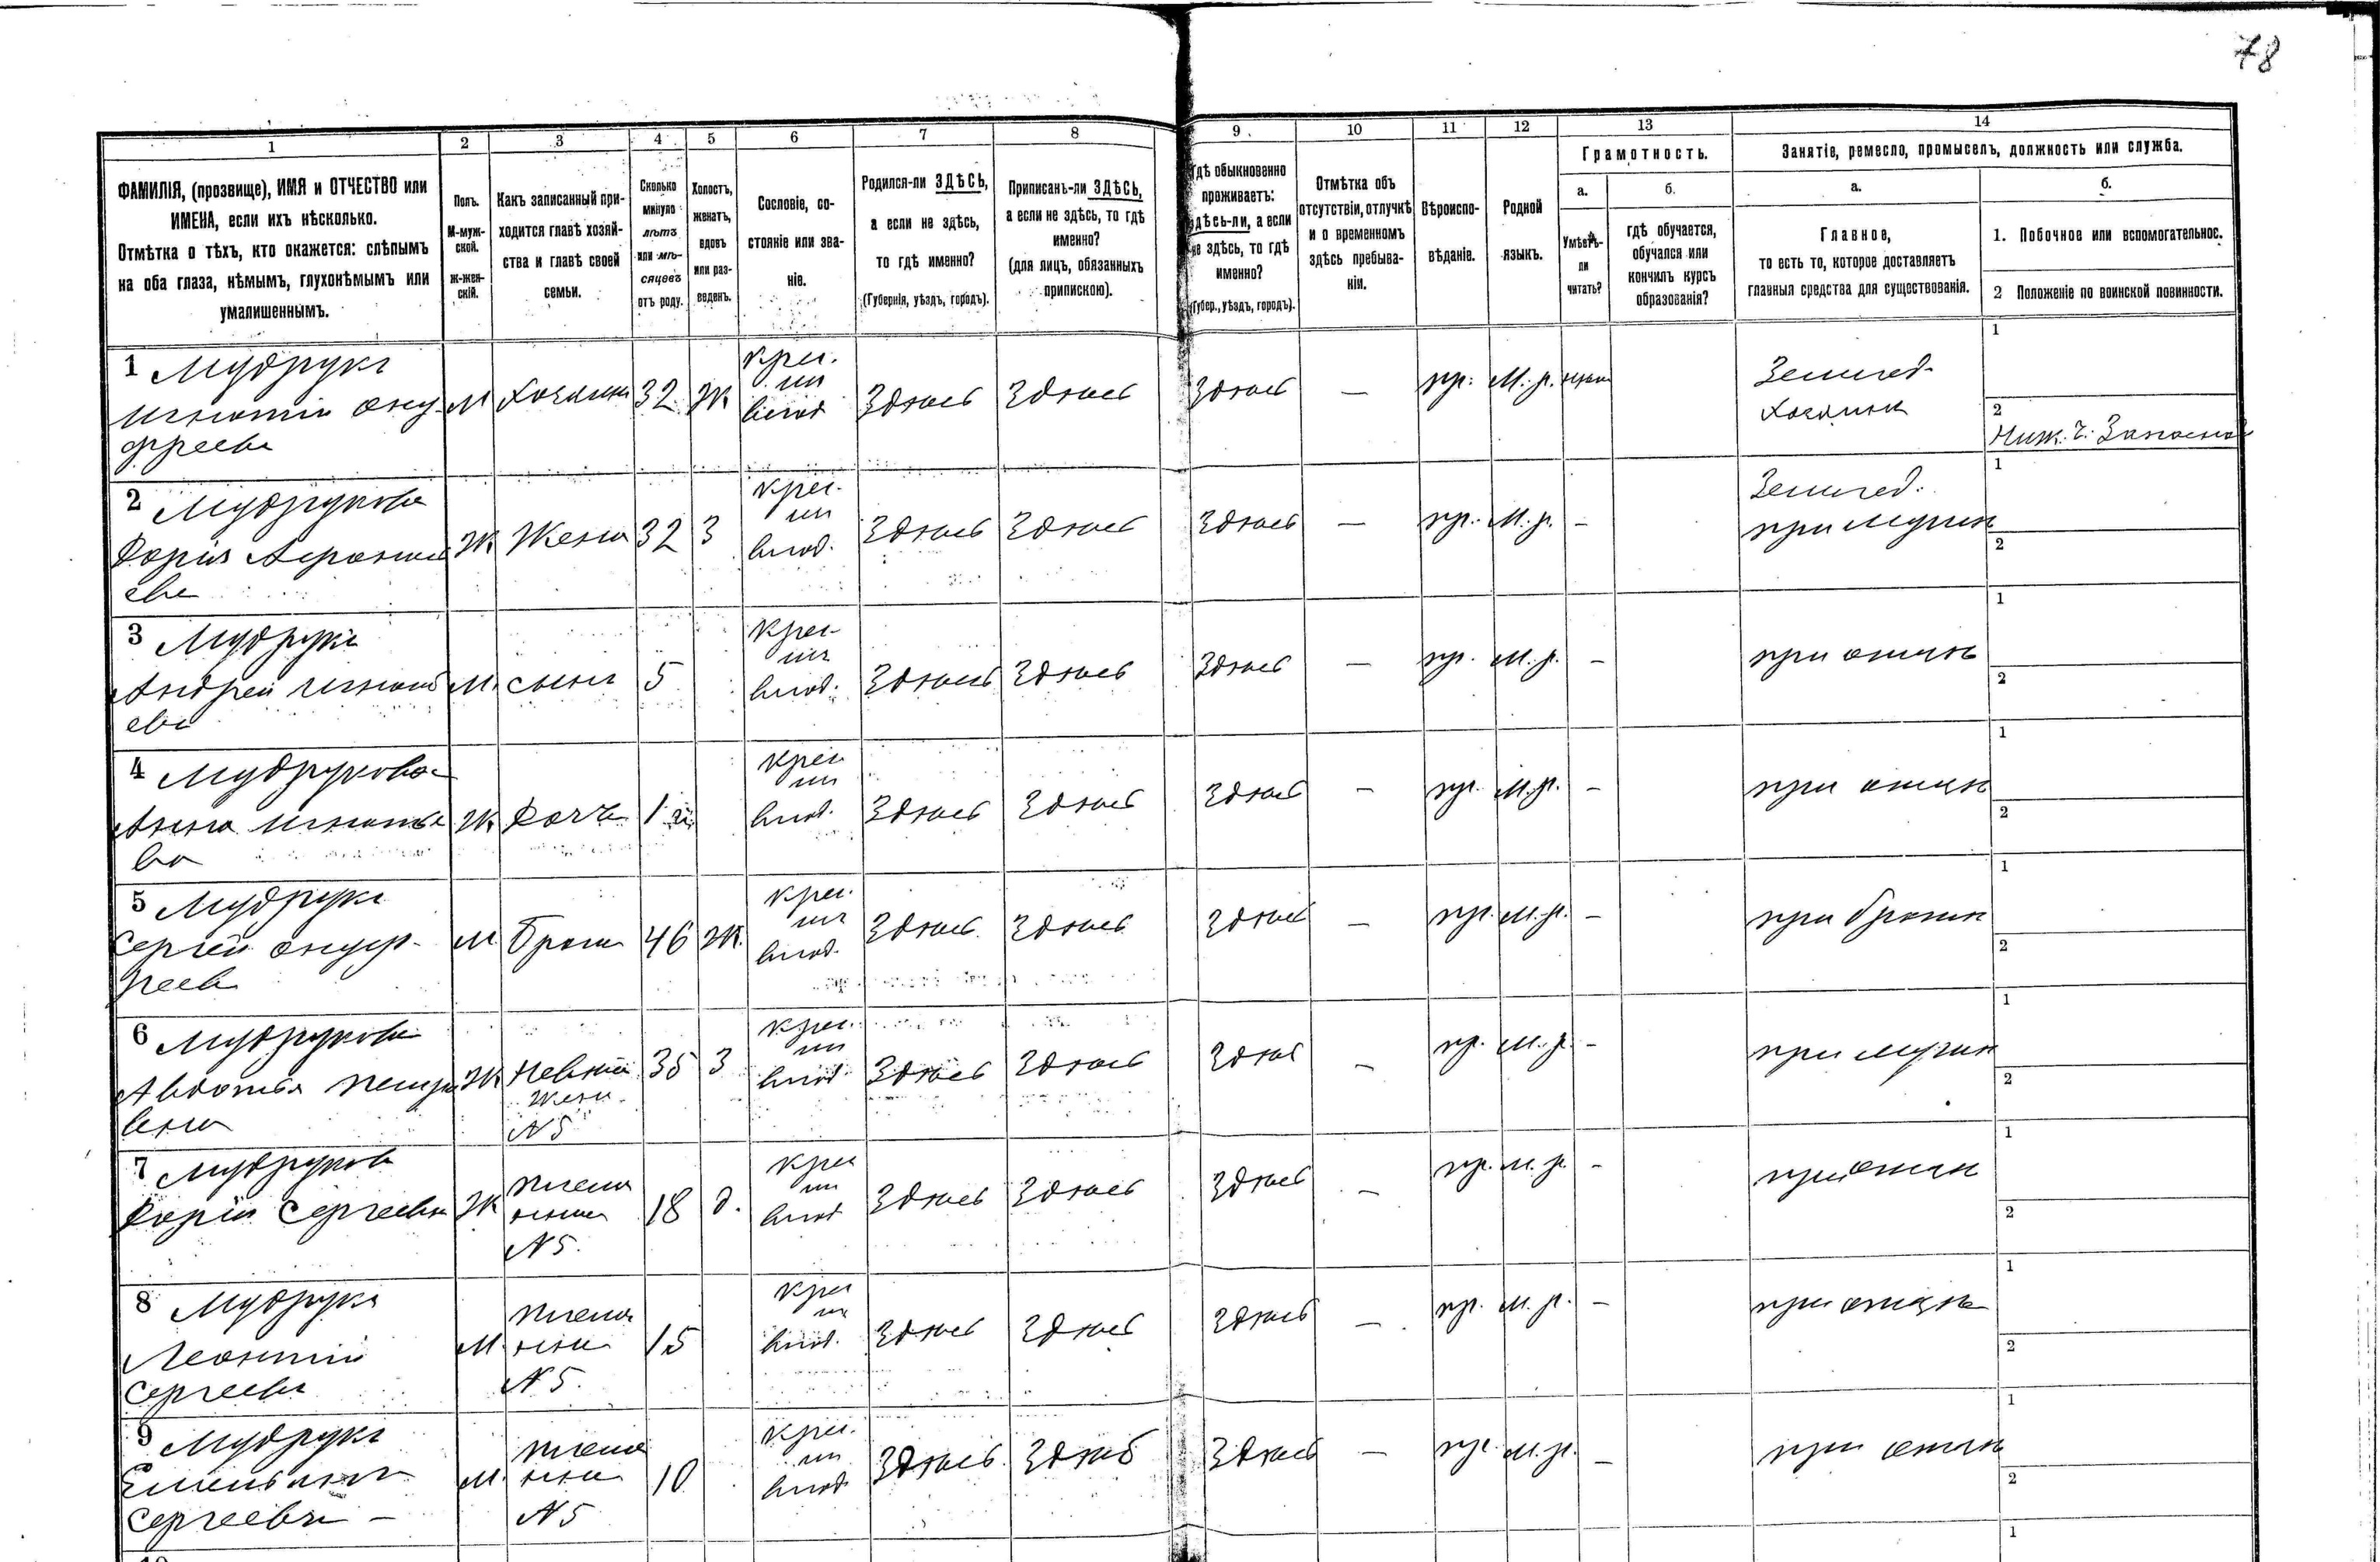 78
1 2 3 4 5 6 7 8 9 10 11 12 13 14
ФАМИЛІЯ, (прозвище), ИМЯ и ОТЧЕСТВО или
ИМЕНА, если ихъ нѣсколько.
Отмѣтка о тѣхъ, кто окажется: слѣпымъ
на оба глаза, нѣмымъ, глухонѣмымъ или
умалишеннымъ.
Полъ.
М-муж-
ской.
Ж-жен-
скій.
Какъ записанный при-
ходится главѣ хозяй-
ства и главѣ своей
семьи.
Сколько
минуло
лѣтъ
или мѣ-
сяцевъ
отъ роду.
Холостъ,
женатъ,
вдовъ
или раз-
веденъ.
Сословіе, со-
стояніе или зва-
ніе.
Родился-ли ЗДѢСЬ,
а если не здѣсь,
то гдѣ именно?
(Губернія, уѣздъ, городъ).
Приписанъ-ли ЗДѢСЬ,
а если не здѣсь, то гдѣ
именно?
(для лицъ, обязанныхъ
припискою).
Гдѣ обыкновенно
проживаетъ:
здѣсь-ли, а если
не здѣсь, то гдѣ
именно?
(Губер., уѣздъ, городъ).
Отмѣтка объ
отсутствіи, отлучкѣ
и о временномъ
здѣсь пребыва-
ніи.
Вѣроиспо-
вѣданіе.
Родной
языкъ.
Грамотность.
а.
Умѣетъ-
ли
читать?
б.
гдѣ обучается,
обучался или
кончилъ курсъ
образованія?
Занятіе, ремесло, промыселъ, должность или служба.
а.
Главное,
то есть то, которое доставляетъ
главныя средства для существованія.
б.
1. Побочное или вспомогательное.
2 Положеніе по воинской повинности.
1 Мудрукъ
Игнатій Ону
фреевъ
М Хозяинъ 32 Ж
Крес.
из
влад
Здѣсь Здѣсь Здѣсь — пр. М. р.
Землед.
Хозяинъ
1
2
Ниж. ч. Запасной
2 Мудрукова
Дарія
ева
Ж Жена 32 З
Крес.
из
влад.
Здѣсь Здѣсь Здѣсь — пр. М. р. —
Землед.
при мужѣ
1
2
3 Мудрукъ
Андрей Игнать
евъ
М. сынъ 5
Крес
из
влад.
Здѣсь Здѣсь Здѣсь — пр. М. р. —
при отцѣ
1
2
4 Мудрукова
Анна Игнатье
ва
Ж Дочь 1 г
Крес
из
влад.
Здѣсь Здѣсь Здѣсь — пр. М. р. —
при отцѣ
1
2
5 Мудрукъ
Сергѣй Онуф-
реев
М Братъ 46 Ж.
Крес.
из
влад.
Здѣсь Здѣсь Здѣсь — пр. М. р. —
при братѣ
1
2
6 Мудрукова
Авдотья Петро
вна
Ж Невѣст
жена
N 5
35 З
Крес.
из
влад.
Здѣсь Здѣсь Здѣсь — пр. М. р. —
при мужѣ
1
2
7 Мудруков
Дарія Сергеевн
Ж Племя
нница
N 5.
18 д.
Крес
из
влад
Здѣсь Здѣсь Здѣсь — пр. М. р. —
при отцѣ
1
2
8 Мудрукъ
Леонтій
Сергеевъ
М. Племя
нни
N 5.
15
Крес
из
влад.
Здѣсь Здѣсь Здѣсь — пр. М. р. —
при отцѣ
1
2
9 Мудрукъ
Емельянъ
Сергеевъ —
М. Племя
нни
N 5
10
Крес.
из
влад
Здѣсь Здѣсь Здѣсь — пр. М. р. —
при отцѣ
1
2
1